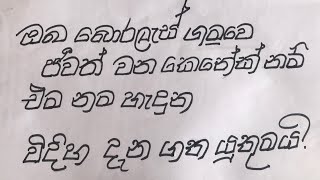 ඔබ බොරලැස් ගමුවෙ
ජීවත් වන කෙනේක් නම්
ඒම නම හැදුන
විදිහ දැන ගත යුතුමයි!